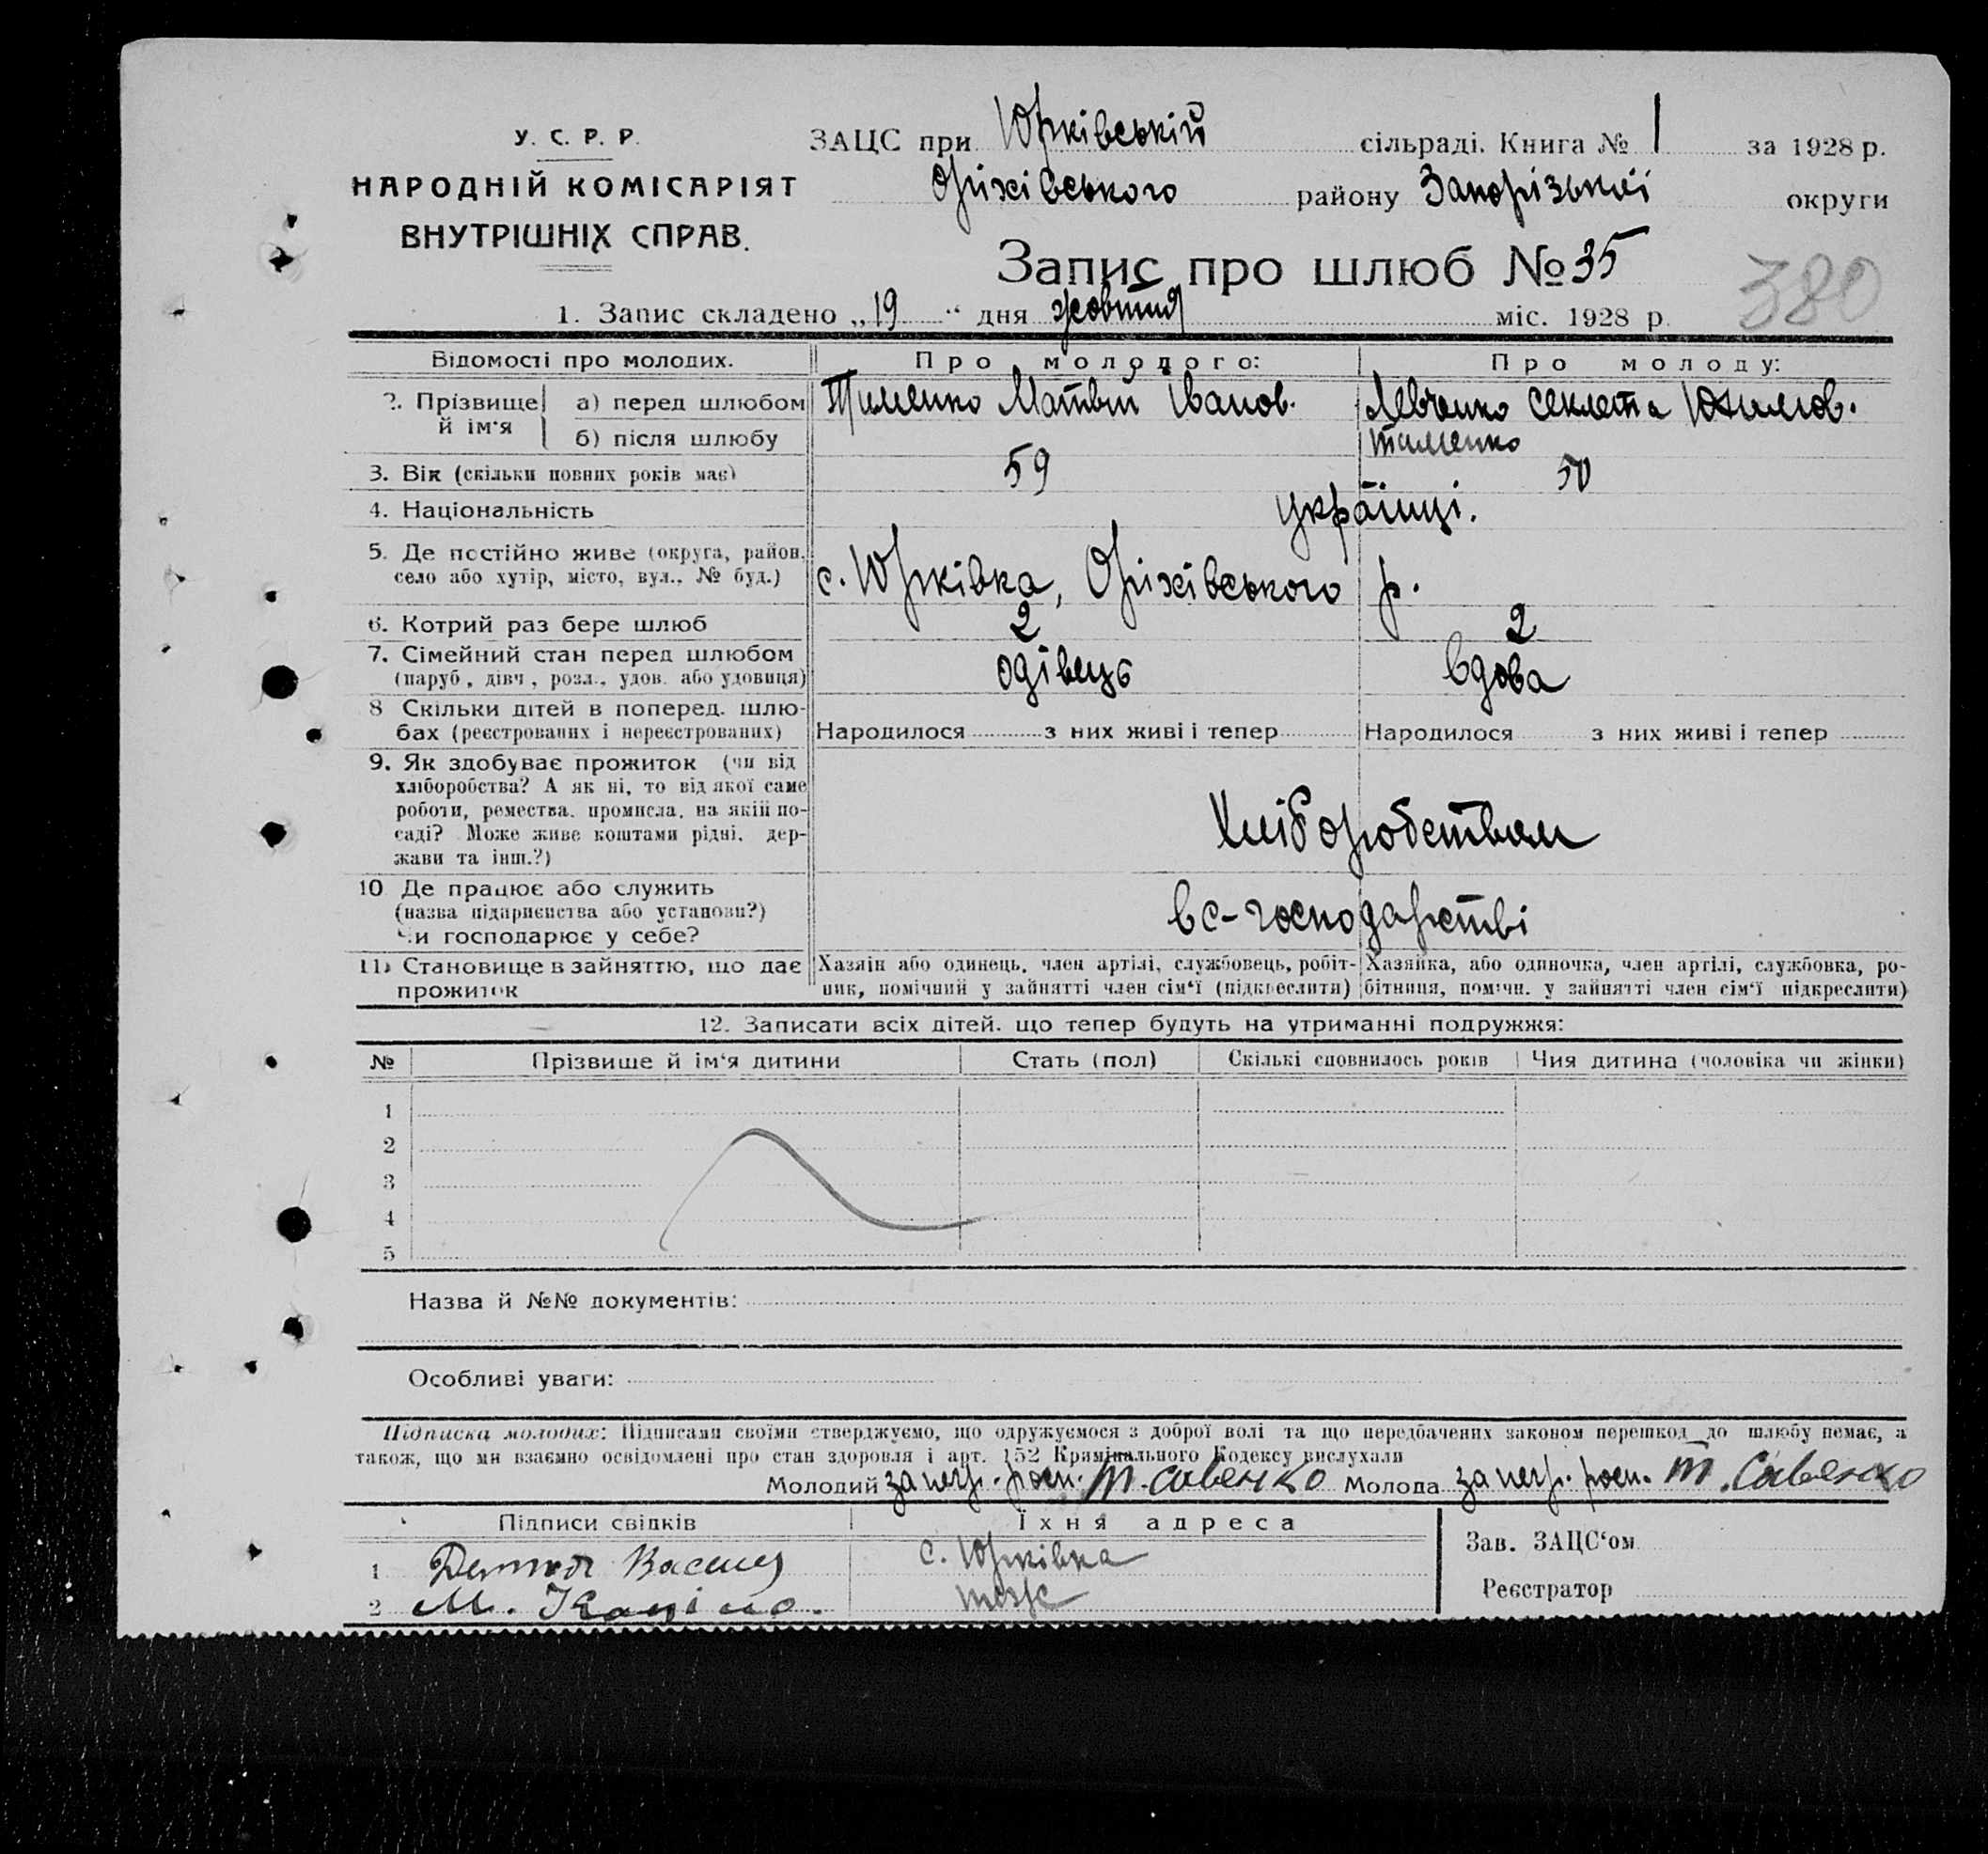 У. С. Р. Р.
НАРОДНІЙ КОМІСАРІЯТ
ВНУТРІШНІХ СПРАВ.
ЗАЦС при Юрківській сільраді. Книга № 1 за 1928 р.
Оріхівського району Запорізької округи
Запис про шлюб № 35
380
1. Запис складено „19“ дня жовтня міс. 1928 р.
Відомості про молодих. Про молодого: Про молоду:
2. Прізвище й ім'я а) перед шлюбом Тименко Матвій Іванов. Левченко Секлета Юхимов.
б) після шлюбу Тименко
3. Вік (скільки повних років має) 59 50
4. Національність українці.
5. Де постійно живе (округа, район, село або хутір, місто, вул., № буд.) с. Юрківка, Оріхівського р.
6. Котрий раз бере шлюб 2 2
7. Сімейний стан перед шлюбом (паруб., дівч., розл., удов. або удовиця) одівець вдова
8 Скільки дітей в поперед. шлюбах (реєстрованих і нереєстрованих) Народилося з них живі і тепер Народилося з них живі і тепер
9. Як здобуває прожиток (чи від хліборобства? А як ні, то від якої саме роботи, ремества, промисла, на якій посаді? Може живе коштами рідні, держави та інш.?) Хліборобством
10 Де працює або служить (назва підприємства або установи?) Чи господарює у себе? в с-господарстві
11) Становище в зайняттю, що дає прожиток Хазяін або одинець, член артілі, службовець, робітник, помічний у зайнятті член сім'ї (підкреслити) Хазяйка, або одиночка, член артілі, службовка, робітниця, помічн. у зайнятті член сім'ї підкреслити)
12. Записати всіх дітей, що тепер будуть на утриманні подружжя:
№ Прізвише й ім'я дитини Стать (пол) Скількі сповнилось років Чия дитина (чоловіка чи жінки)
1
2
3
4
5
Назва й №№ документів:
Особливі уваги:
Підписка молодих: Підписами своїми стверджуємо, що одружуємося з доброї волі та що передбачених законом перешкод до шлюбу немає, а
також, що ми взаємно освідомлені про стан здоровля і арт. 152 Кримінального Кодексу вислухали
Молодий за негр. росп. Т. Савенко Молода за негр. росп. Т. Савенко
Підписи свідків Їхня адреса Зав. ЗАЦС'ом
1 Василь с. Юрківка
2 М. теж Реєстратор